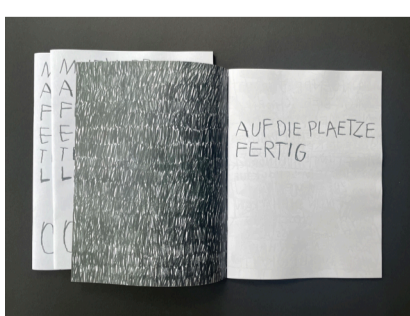 M
A
F
E
T
L
M
A
F
E
T
L
AUF DIE PLAETZE
FERTIG